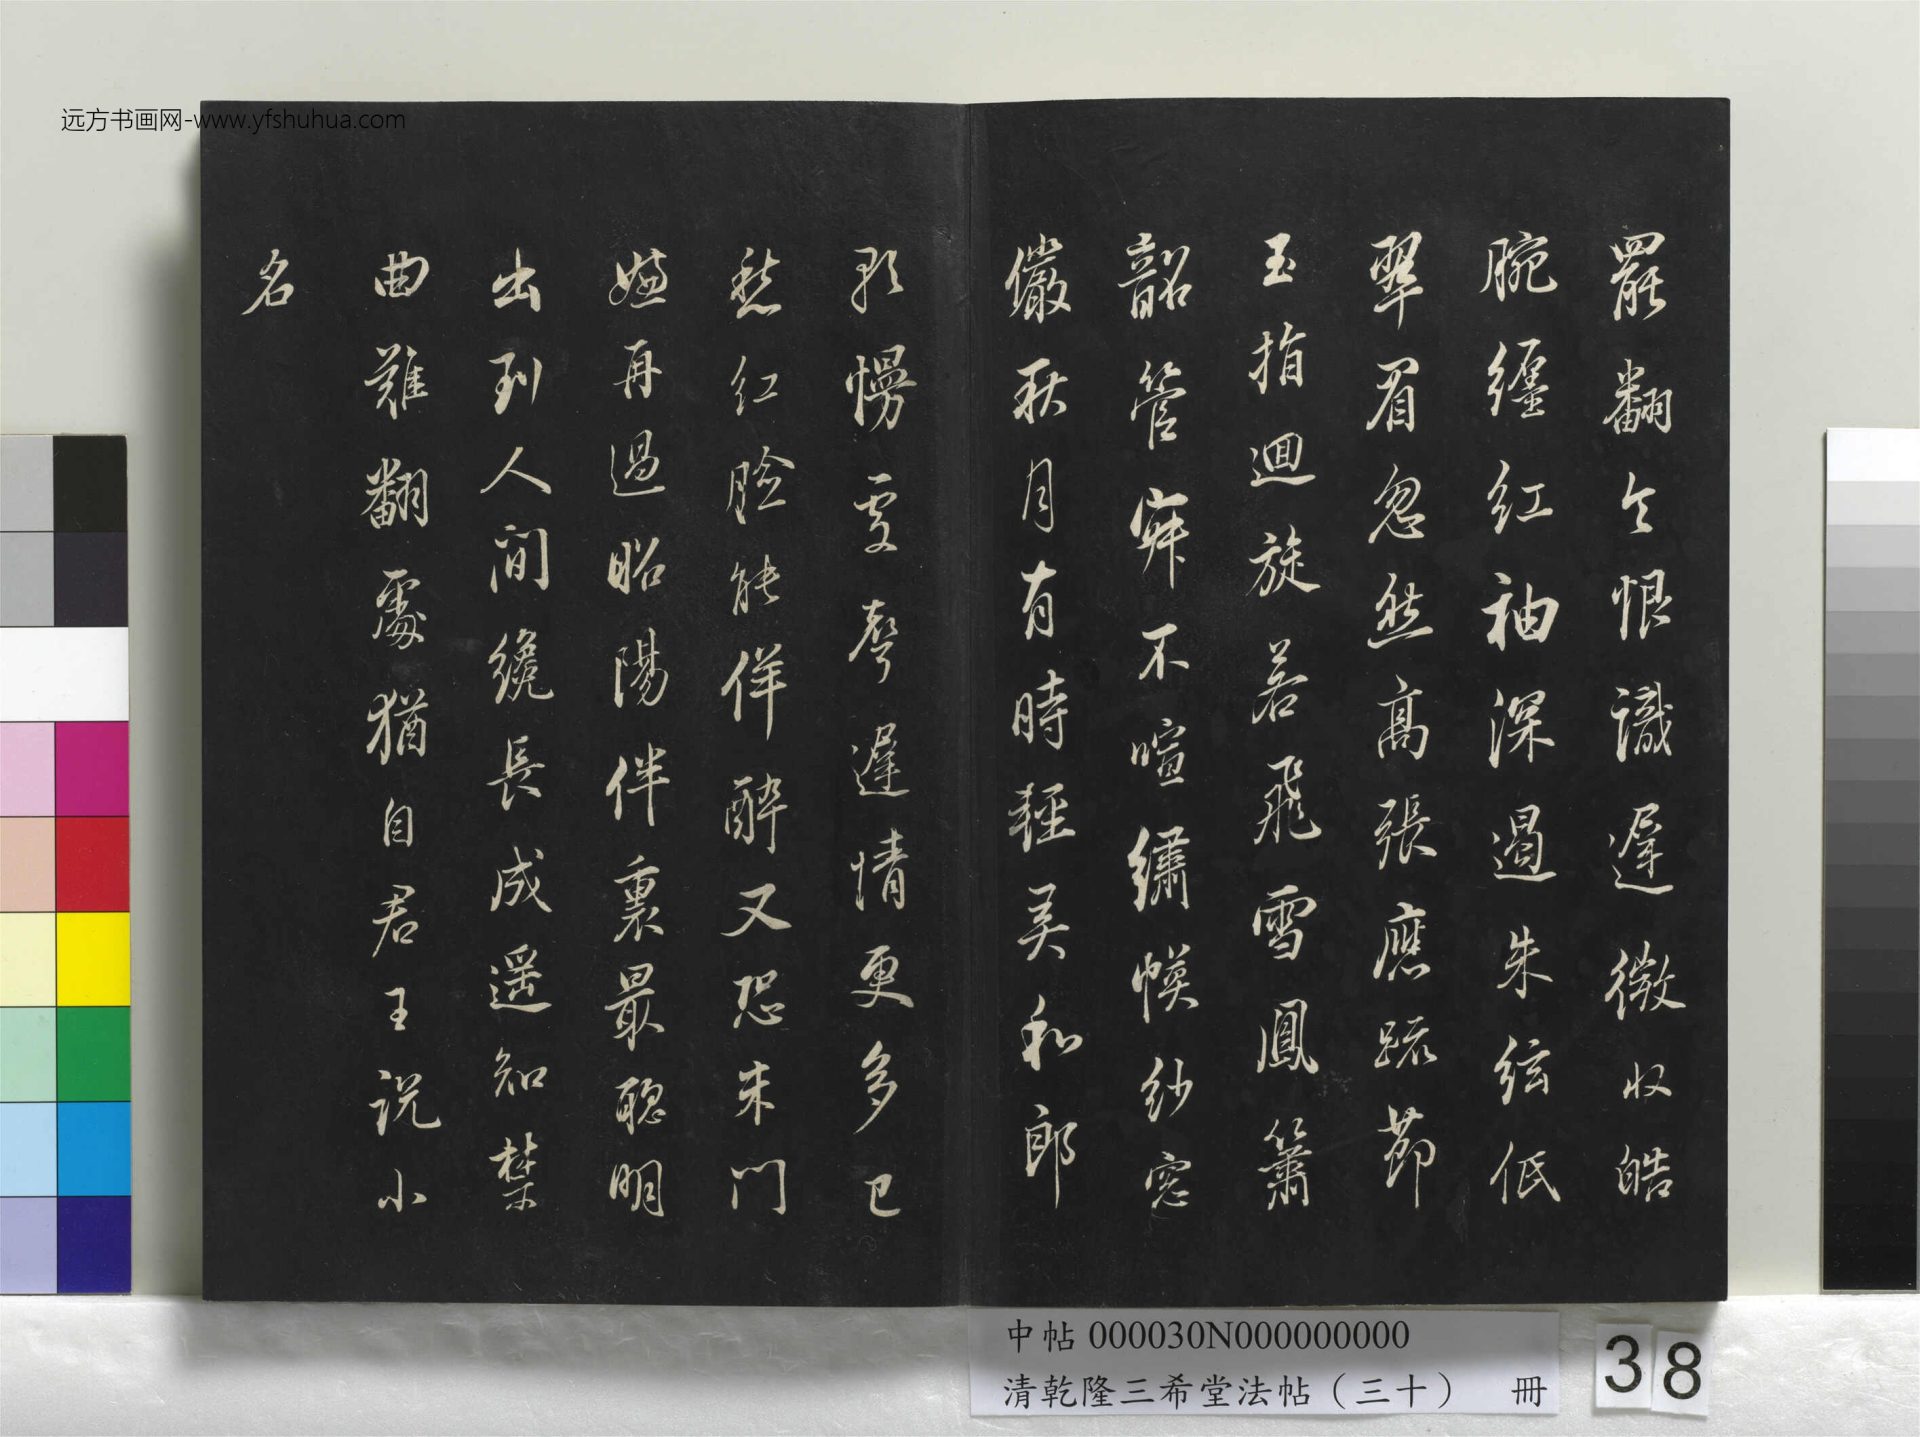 远方书画网-www.yfshuhua.com
罷翻今恨識遲微收皓
腕纏紅袖深遏朱絃低
翠眉忽然高張應疏節
玉指迴旋若飛雪鳳簫
韶管寂不喧繡幙紗窓
儼秋月有時輕弄和郎
歌慢處聲遲情更多已
愁紅臉能佯醉又恐朱門
嫌再過昭陽伴裏最聰明
出到人間纔長成遥知禁
曲難翻處猶自君王說小
名
中帖 000030N000000000
清乾隆三希堂法帖（三十） 冊
38